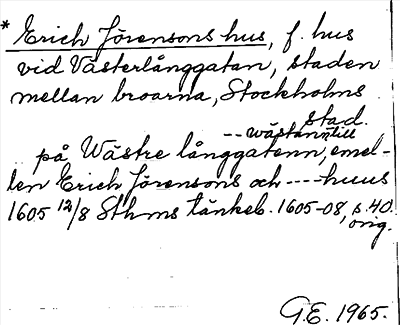 * Erich Jörensons hus, f. hus
vid Västerlånggatan, staden
mellan broarna, Stockholms
stad.
-- wästann till
på Wästre långgatenn, emel-
len Erich Jörensons och ---- huus
1605 12/8 Sthms tänkeb. 1605-08, s. 40.
orig.
G.E. 1965.